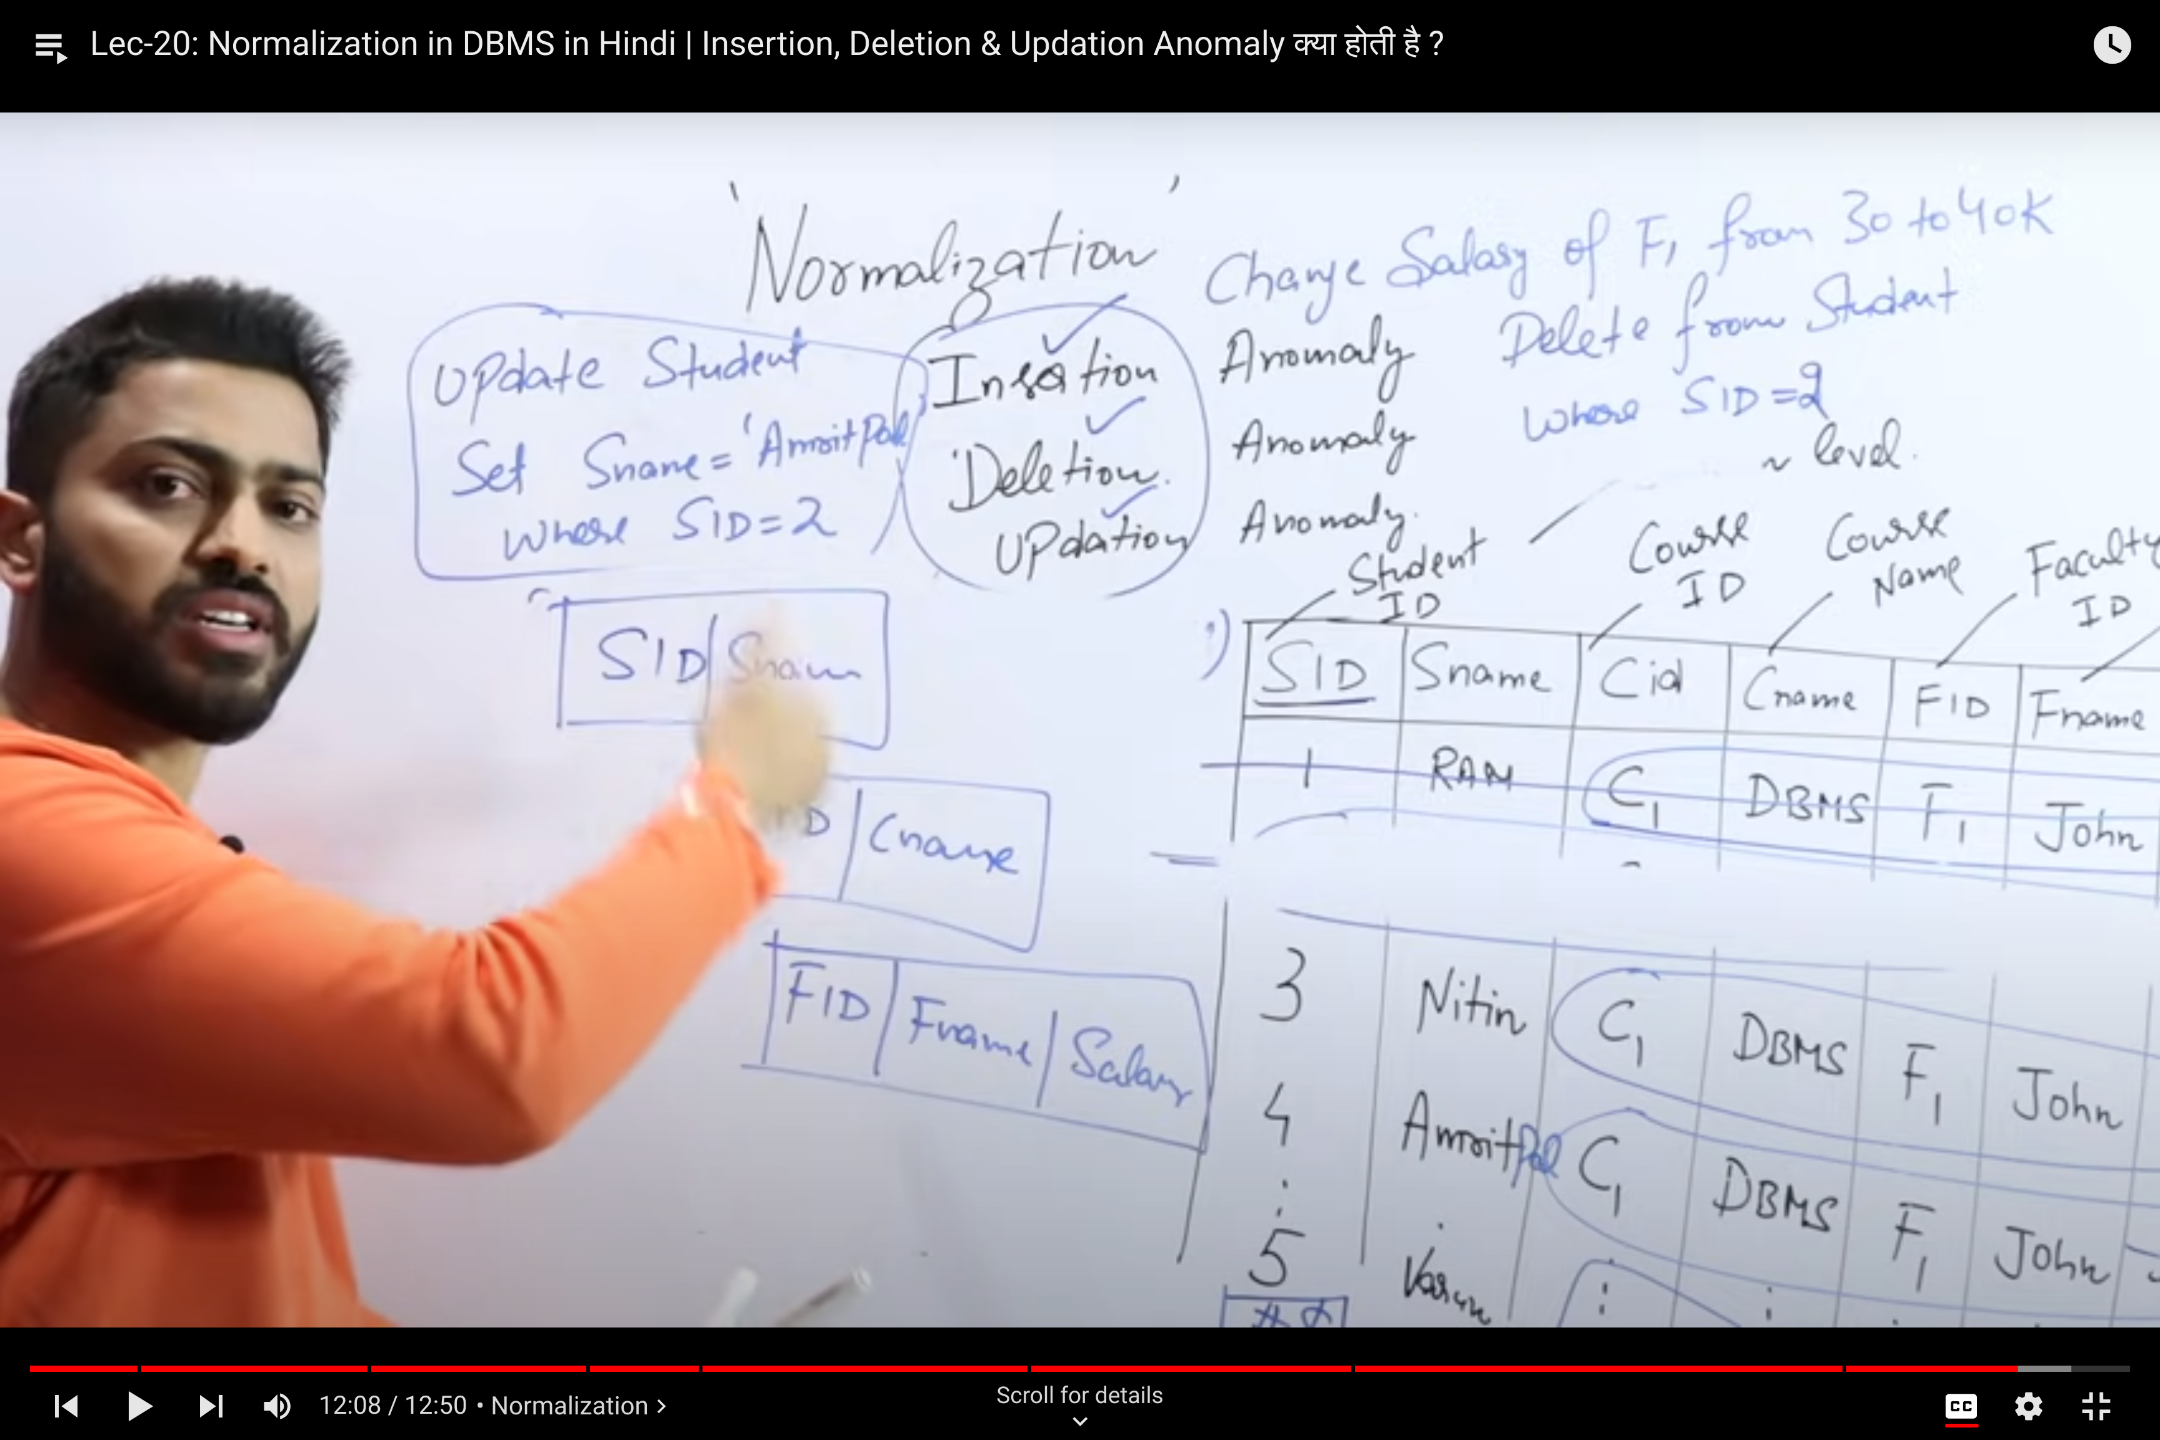 Lec-20: Normalization in DBMS in Hindi | Insertion, Deletion & Updation Anomaly क्या होती है ?
'Normalization'
Change Salary of F1 from 30 to 40K
Update Student
Set Sname = 'AmritPal'
Where SID=2
Insertion Anomaly
Deletion Anomaly
Updation Anomaly
Delete from Student
Where SID=2
level
Student ID
Course ID
Course Name
Faculty ID
SID Sname
D Cname
FID Fname Salary
1)
SID Sname Cid Cname FID Fname
1 RAM C1 DBMS F1 John
3 Nitin C1 DBMS F1 John
4 AmritPal C1 DBMS F1 John
5 Varun
12:08 / 12:50 • Normalization
Scroll for details
CC